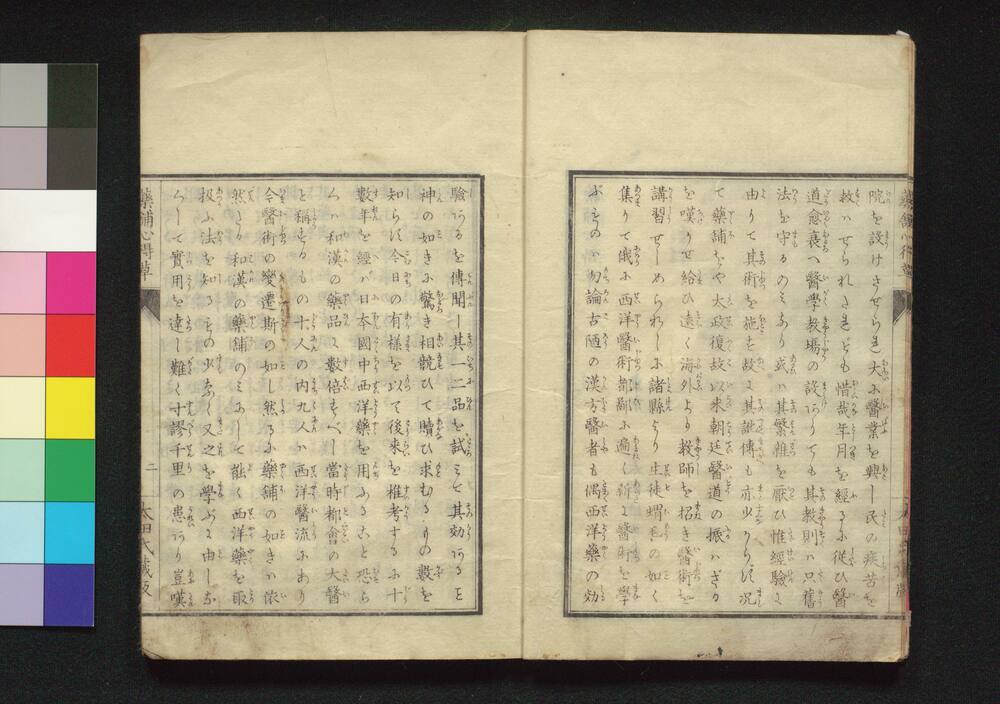 院を設けさせられ大に醫業を興し民の疾苦を
救ハせられされども惜哉年月を經るに從ひ醫
道愈衰へ醫學教場の設ありても其教則ハ只舊
法を守るのミなり或ハ其繁雑を厭ひ惟經驗に
由りて其術を施す故に其訛傳も亦少からず况
て藥舗をや大政復故以來朝廷醫道の振ハざる
を嘆かせ給ひ遠く海外より教師を招き醫術を
講習せしめられしに諸縣より生徒蝟毛の如く
集りて儀に西洋醫術都鄙に遍く新に醫術を學
ぶものハ勿論古陋の漢方醫者も偶西洋藥の効
驗あるを傳聞し其一二品を試ミて其効あると
神の如きに驚き相競ひて購ひ求むるもの數を
知らず今日の有樣を以て後來を推考するに十
數年を經バ日本國中西洋藥を用ふること恐ら
くハ和漢の藥品に數倍すべし當時都會の大醫
と稱するもの十人の内九人ハ西洋醫流なり
今醫術の變遷斯の如し然るに藥舗の如きハ依
然たる和漢の藥舗のミありて能く西洋藥を取
扱ふ法を知るもの少なく又之を學ぶに由しな
くして實用を達し難く寸謬千里の患あり豈嘆
藥舗心得草
二
太田氏藏版